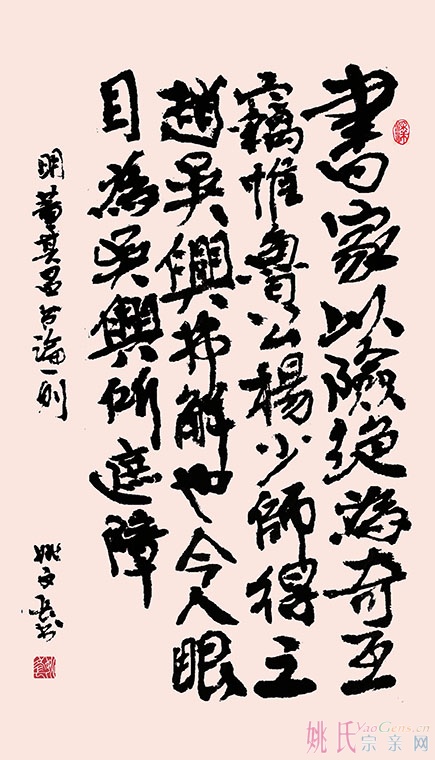 書家以險絕為奇
竊惟魯公楊少師得之
趙吳興弗解也今人眼
目為吳興所遮障
明董其昌書論一則
姚
姚氏宗亲网
YaoGens.cn